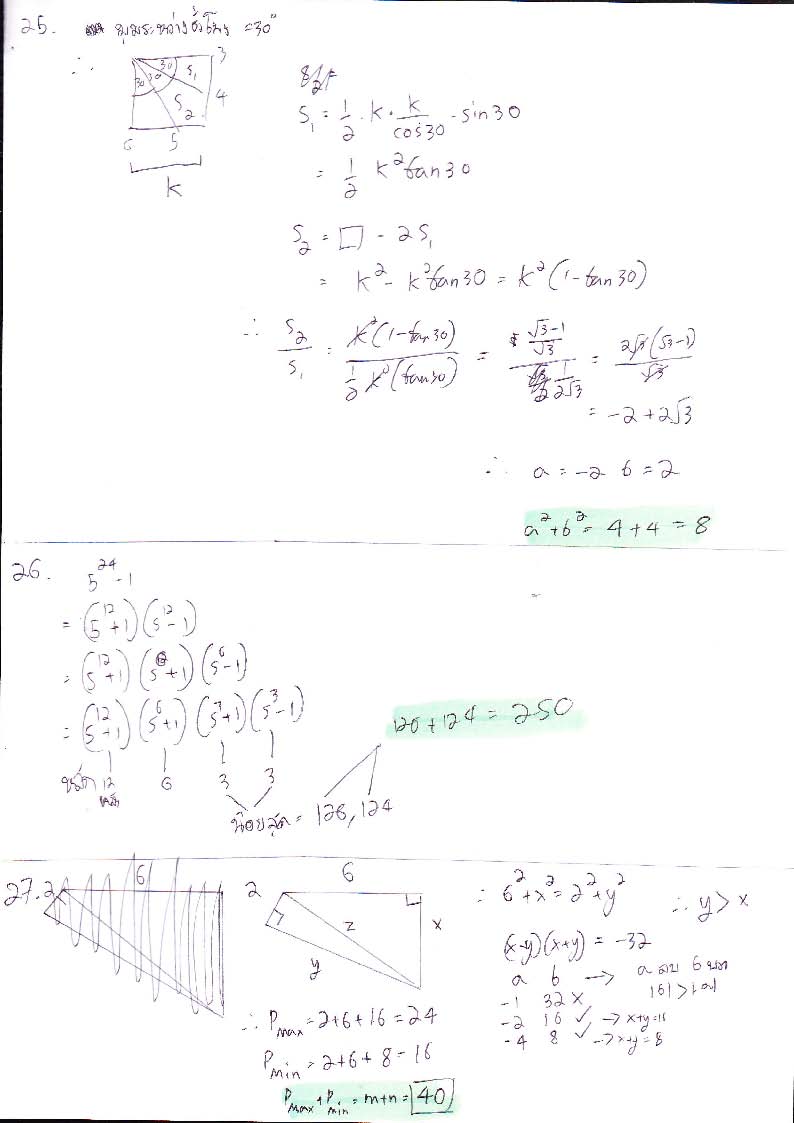 25. มุมระหว่างชั่วโมง = 30°
∴
3
30 S₁
30 30
4
S₂
6 5
k
S₁ = 1/2 · k · k/cos30 · sin30
= 1/2 k² tan30
S₂ = □ - 2S₁
= k² - k² tan30 = k² (1 - tan30)
∴ S₂/S₁ = k² (1 - tan30) / 1/2 k² (tan30) = (√3-1)/√3 / 1/2√3 = 2√3 (√3-1)/√3
= -2 + 2√3
∴ a = -2 b = 2
a² + b² = 4 + 4 = 8
26. 5²⁴ - 1
= (5¹² + 1) (5¹² - 1)
= (5¹² + 1) (5⁶ + 1) (5⁶ - 1)
= (5¹² + 1) (5⁶ + 1) (5³ + 1) (5³ - 1)
12 6 3 3
หลัก
น้อยสุด = 126, 124
126 + 124 = 250
27. 2
6
2 6
z x
y
∴ 6² + x² = 2² + y² ∴ y > x
(x-y)(x+y) = -32
a b → a ลบ b บวก
|b| > |a|
-1 32 ×
-2 16 ✓ → x+y = 16
-4 8 ✓ → x+y = 8
∴ Pmax = 2+6+16 = 24
Pmin = 2+6+8 = 16
Pmax + Pmin = m+n = 40